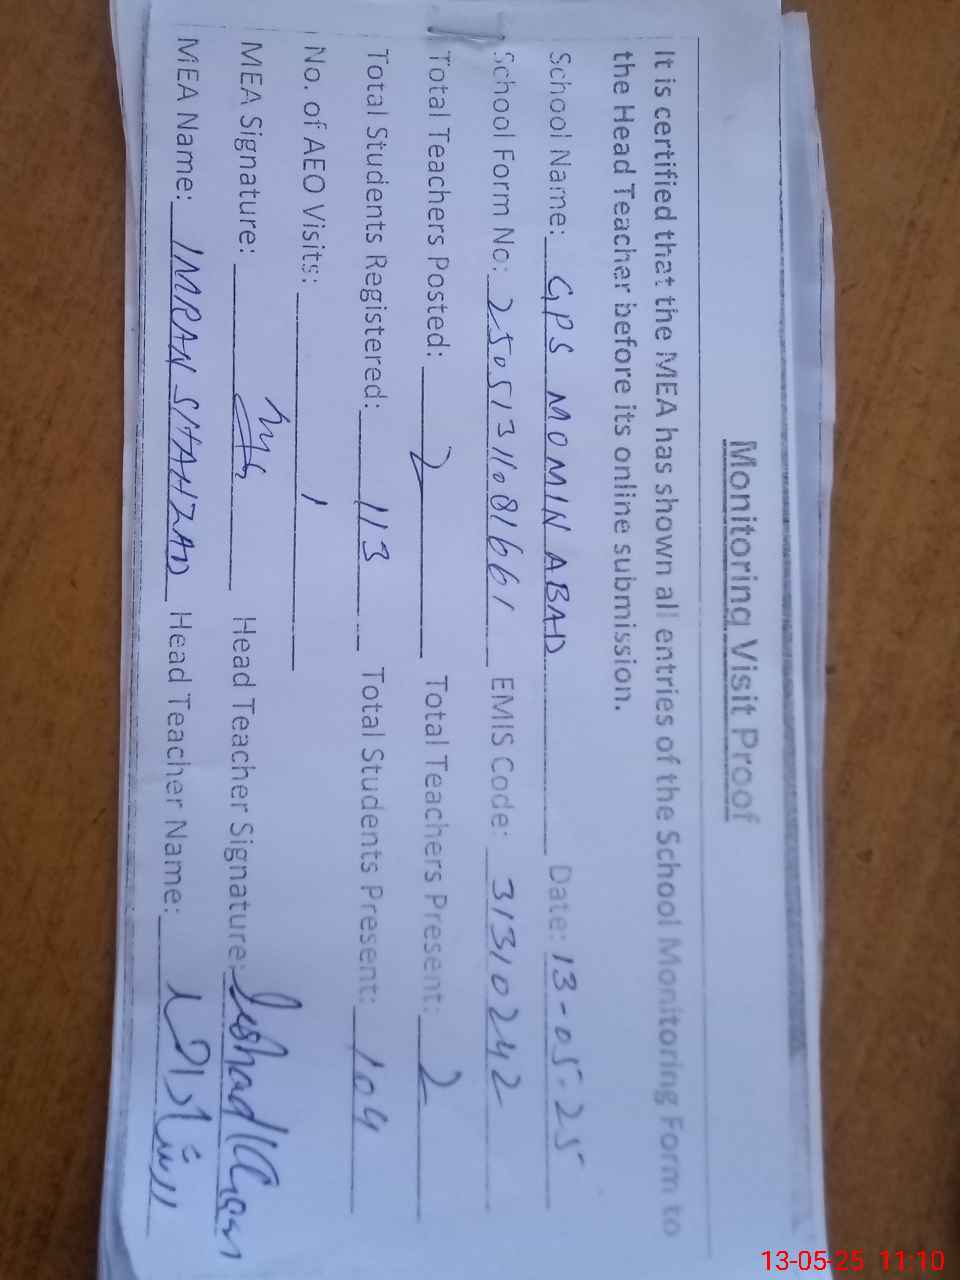 Monitoring Visit Proof
It is certified that the MEA has shown all entries of the School Monitoring Form to
the Head Teacher before its online submission.
School Name: GPS MOMIN ABAD Date: 13-05-25
School Form No: 25051311081661 EMIS Code: 31310242
Total Teachers Posted: 2 Total Teachers Present: 2
Total Students Registered: 113 Total Students Present: 104
No. of AEO Visits: 1
MEA Signature: Head Teacher Signature: Irshad Khan
MEA Name: IMRAN SHAHZAD Head Teacher Name: ارشاد خان
13-05-25 11:10